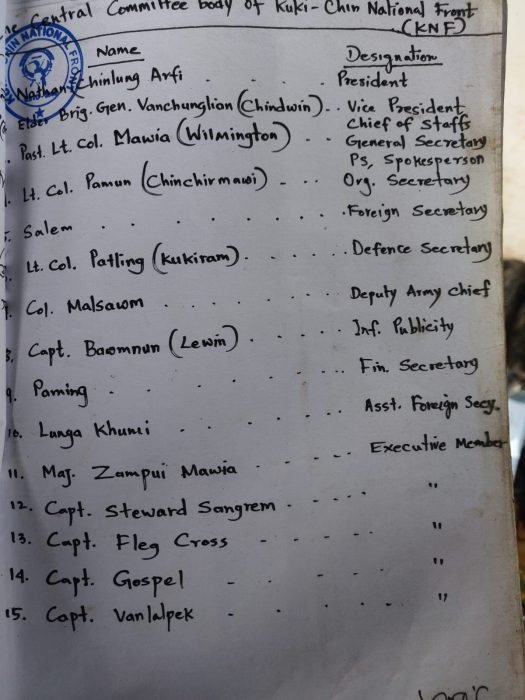 The Central Committee body of Kuki-Chin National Front
(KNF)
Name Designation
Nathan Chinlung Arfi . . . . President
Elder Brig. Gen. Vanchunglian (Chindwin) . . Vice President
Chief of Staffs
Past. Lt. Col. Mawia (Wilmington) . . General Secretary
PS, Spokesperson
Lt. Col. Pamun (Chinchirmawi) - . . Org. Secretary
5. Salem . . . . . . . Foreign Secretary
Lt. Col. Patling (Kukiram) . . . . . Defence Secretary
7. Col. Malsawm . . . . . . . Deputy Army Chief
8. Capt. Bawmnun (Lewin) . . . . . Inf. Publicity
9. Paming . . . . . . . Fin. Secretary
10. Lunga Khumi . . . . . . Asst. Foreign Secy.
11. Maj. Zampui Mawia - - - . Executive Member
12. Capt. Steward Sangrem - . . . . "
13. Capt. Fleg Cross - - - - - "
14. Capt. Gospel - - - - - "
15. Capt. Vanlalpek - - - - . . "